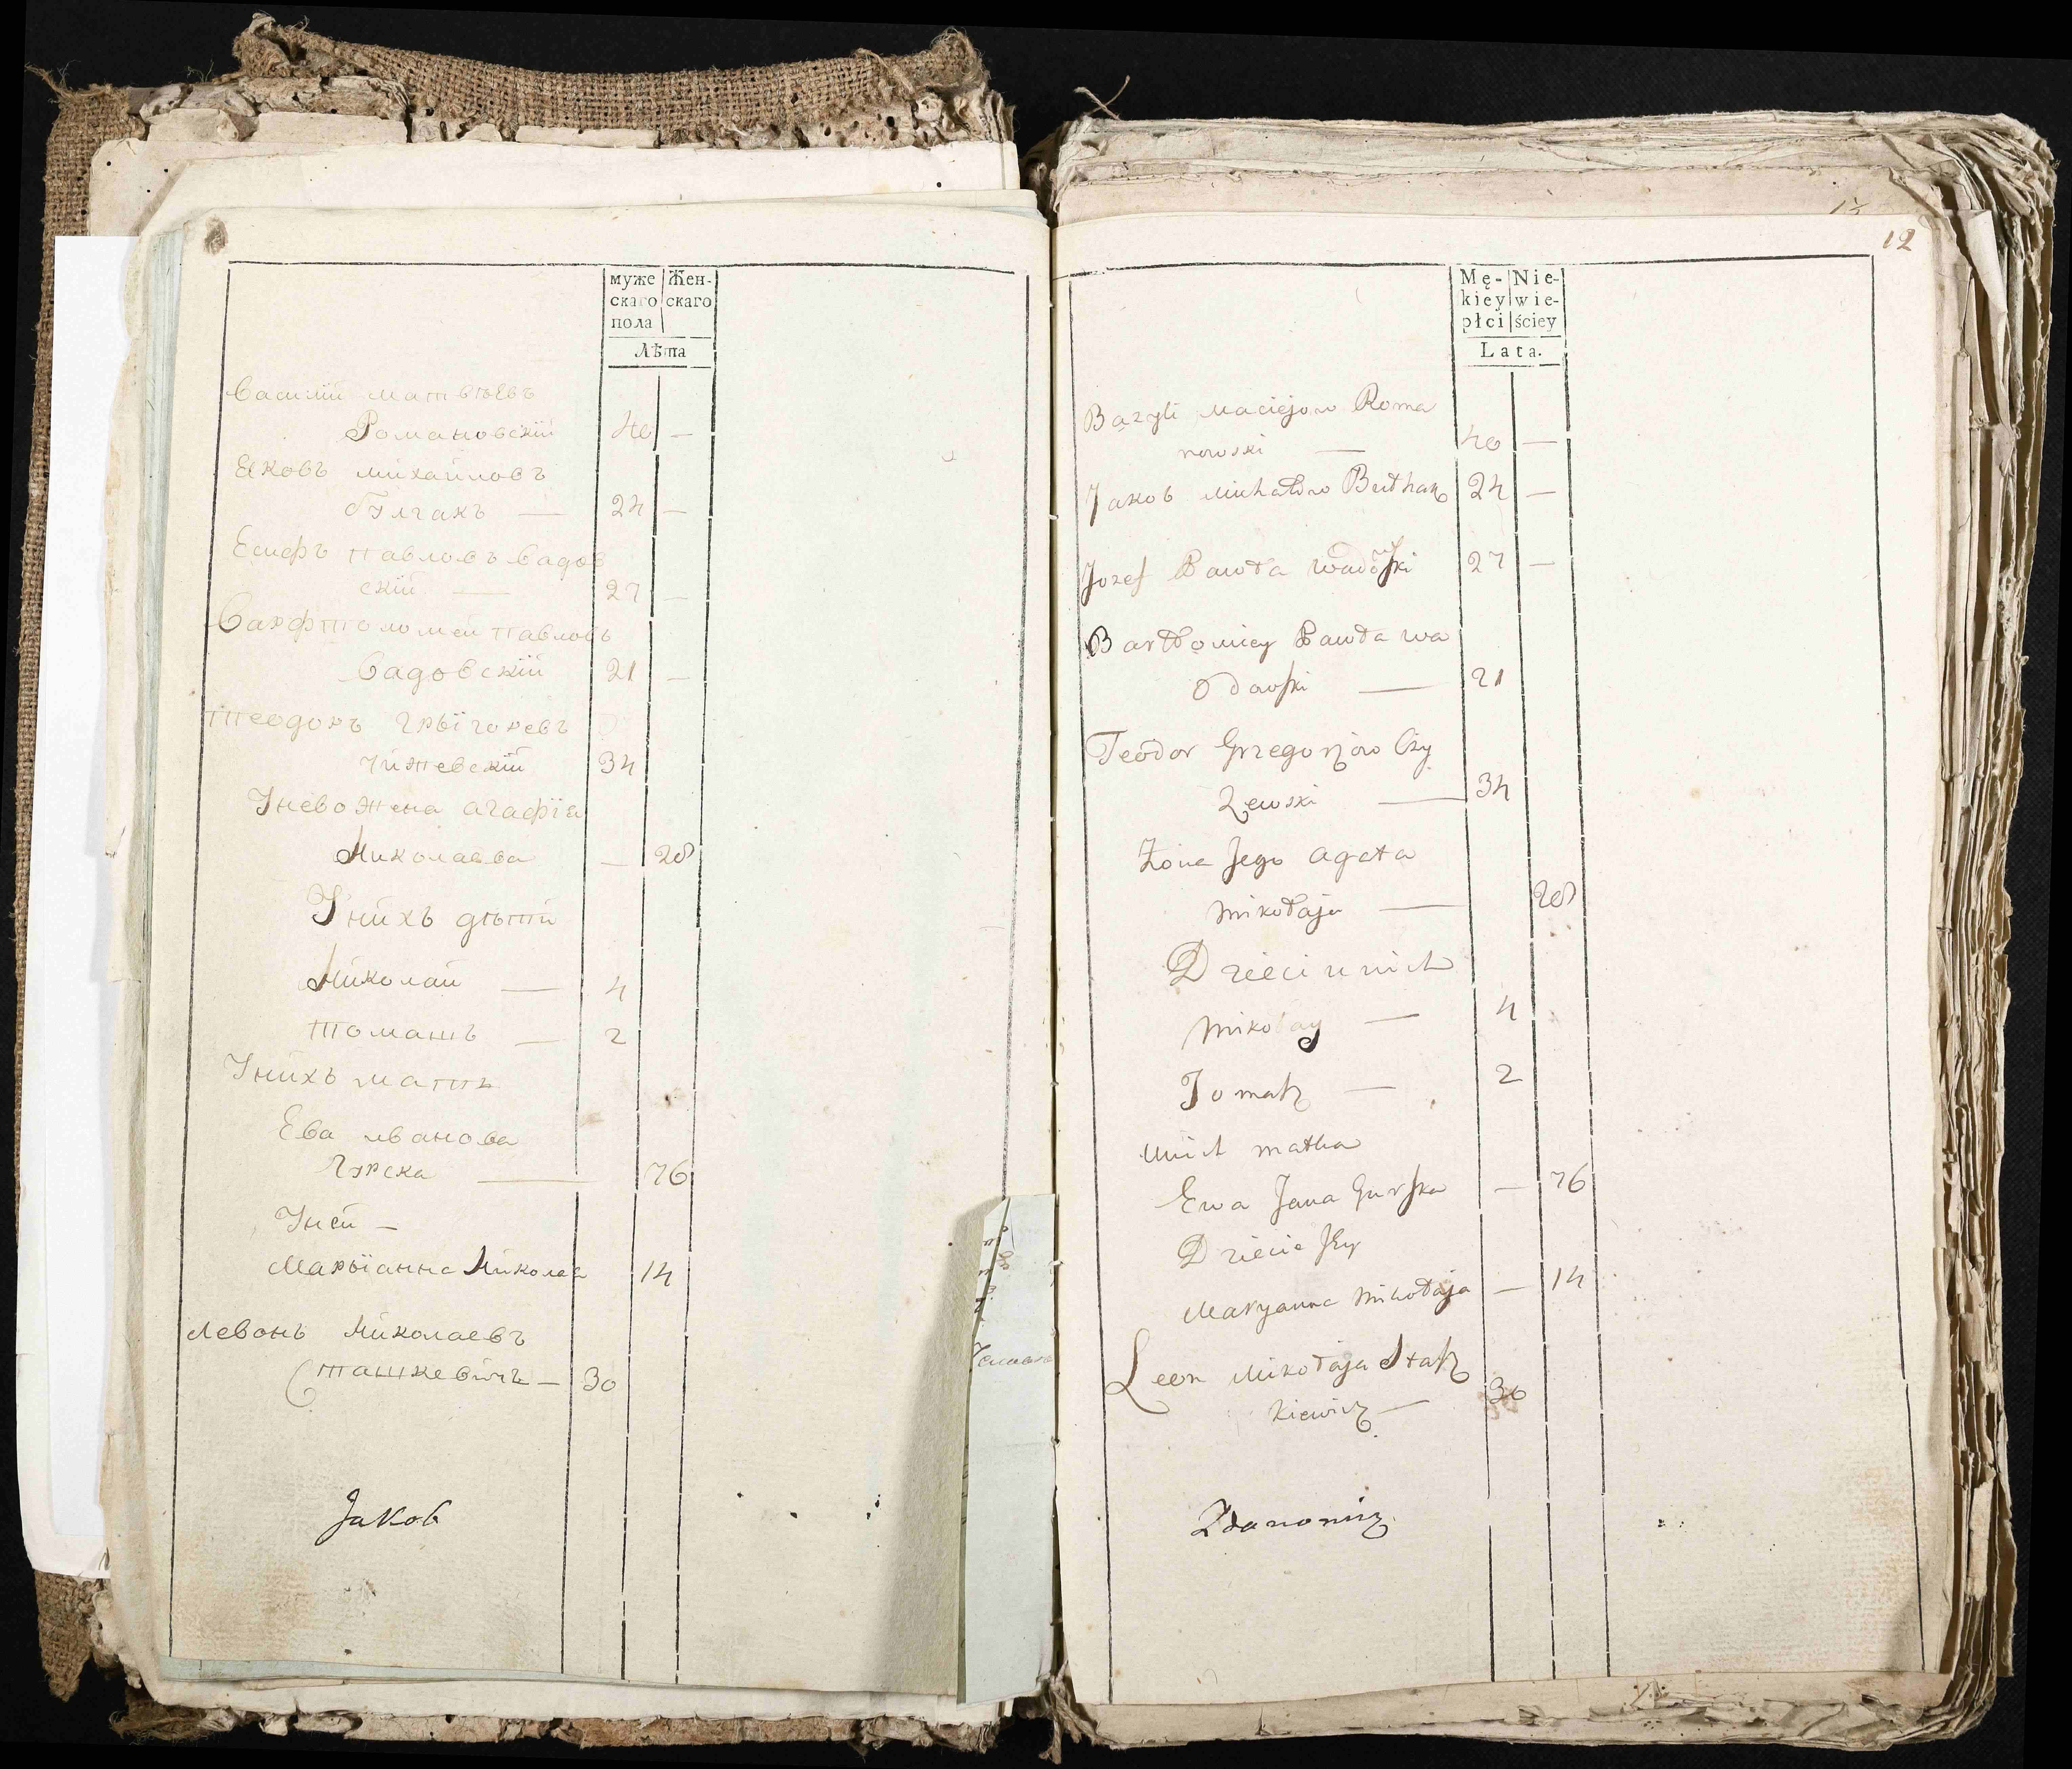 муже
скаго
пола
Жен-
скаго
Лѣта
Василiй Матвѣевъ
Романовскiй 40 —
Яковъ михайловъ
Булгакъ — 24 —
Есифъ павловъ Вадов
скiй — 27 —
Варфтоломей павловъ
Вадовскiй 21 —
Теодоръ Грыгоревъ
Чижевскiй 34
Унево Жена агафiя
Николаева — 28
Унихъ дѣти
Николай — 4
Томашъ — 2
Унихъ мать
Ева ивановa
Гурска — 76
Уней —
Марыанна Николая 14
Левонъ Николаевъ
Сташкевичъ — 30
Jakob
12
Mę-
kiey
płci
Nie-
wie-
ściey
Lata.
Bazyli Maciejow Roma
nowski — 40 —
Jakob Michałow Buthak 24 —
Jozef Pawła Wadowski 27 —
Bartłomiey Pawła wa
dowski — 21
Teodor Grzegorzow Czy
żewski — 34
Żona Jego Agata
Mikołaja — 28
Dzieci u nich
Mikołay — 4
Tomasz — 2
Unich matka
Ewa Jana Gurska — 76
Dziecie Jey
Maryanna Mikołaja — 14
Leon Mikołaja Stasz
kiewicz — 30
Zdanowicz